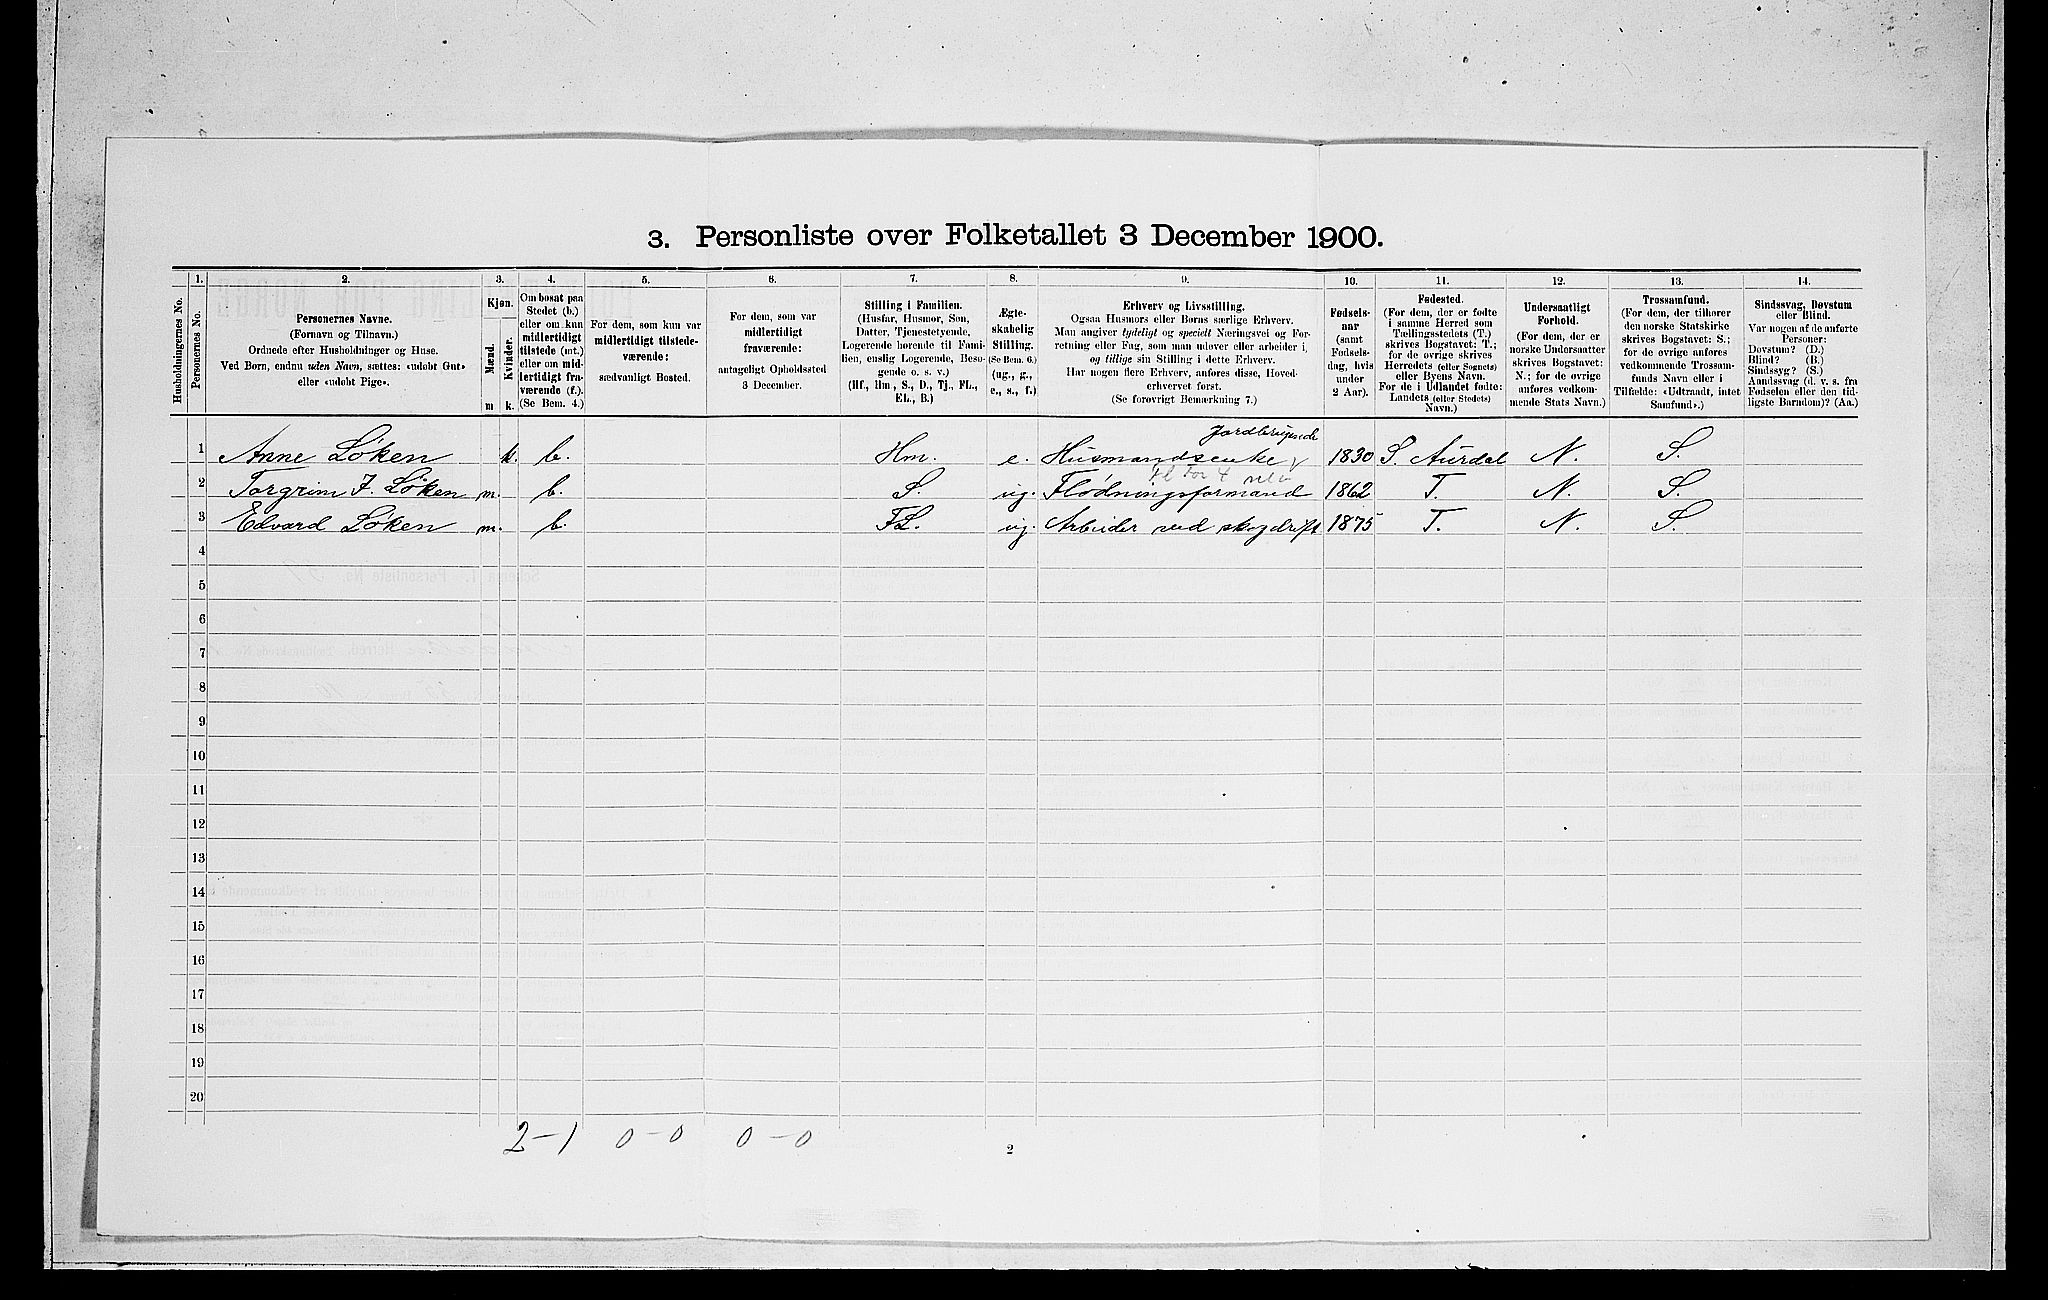 3. Personliste over Folketallet 3 December 1900.
Husholdningernes No.
1.
Personernes No.
2.
Personernes Navne.
(Fornavn og Tilnavn.)
Ordnede efter Husholdninger og Huse.
Ved Børn, endnu uden Navn, sættes: «udøbt Gut»
eller «udøbt Pige».
3.
Kjøn.
Mænd.
Kvinder.
m
k.
4.
Om bosat paa
Stedet (b.)
eller om kun
midlertidigt
tilstede (mt.)
eller om mid-
lertidigt fra-
værende (f.).
(Se Bem. 4.)
5.
For dem, som kun var
midlertidigt tilstede-
værende:
sædvanligt Bosted.
6.
For dem, som var
midlertidigt
fraværende:
antageligt Opholdssted
3 December.
7.
Stilling i Familien.
(Husfar, Husmor, Søn,
Datter, Tjenestetyende,
Logerende hørende til Fami-
lien, enslig Logerende, Besø-
gende o. s. v.)
(Hf., Hm., S., D., Tj., FL.,
EL., B.)
8.
Ægte-
skabelig
Stilling.
(Se Bem. 6.)
(ug., g.,
e., s., f.)
9.
Erhverv og Livsstilling.
Ogsaa Husmors eller Børns særlige Erhverv.
Man angiver tydeligt og specielt Næringsvei og For-
retning eller Fag, som man udøver eller arbeider i,
og tillige sin Stilling i dette Erhverv.
Har nogen flere Erhverv, anføres disse, Hoved-
erhvervet først.
(Se forøvrigt Bemærkning 7.)
10.
Fødsels-
aar
(samt
Fødsels-
dag, hvis
under
2 Aar).
11.
Fødested.
(For dem, der er fødte
i samme Herred som
Tællingsstedets (T.)
skrives Bogstavet: T.;
for de øvrige skrives
Herredets (eller Sognets)
eller Byens Navn.
For de i Udlandet fødte:
Landets (eller Stedets)
Navn.)
12.
Undersaatligt
Forhold.
(For dem, der er
norske Undersaatter
skrives Bogstavet:
N.; for de øvrige
anføres vedkom-
mende Stats Navn.)
13.
Trossamfund.
(For dem, der tilhører
den norske Statskirke
skrives Bogstavet: S.;
for de øvrige anføres
vedkommende Trossam-
funds Navn eller i
Tilfælde: «Udtraadt, intet
Samfund».)
14.
Sindssvag, Døvstum
eller Blind.
Var nogen af de anførte
Personer:
Døvstum? (D.)
Blind? (B.)
Sindssyg? (S.)
Aandssvag (d. v. s. fra
Fødselen eller den tid-
ligste Barndom)? (Aa.)
Jordbrugende
1 Anne Løken k. b. Hm. e. Husmandsenke 1830 S. Aurdal N. S.
2 Torgrim J. Løken m. b. S. ug. Flødningsformand 1862 T. N. S.
3 Edvard Løken m. b. FL. ug. Arbeider ved skogdrift 1875 T. N. S.
4
5
6
7
8
9
10
11
12
13
14
15
16
17
18
19
20
2-1 0-0 0-0
2